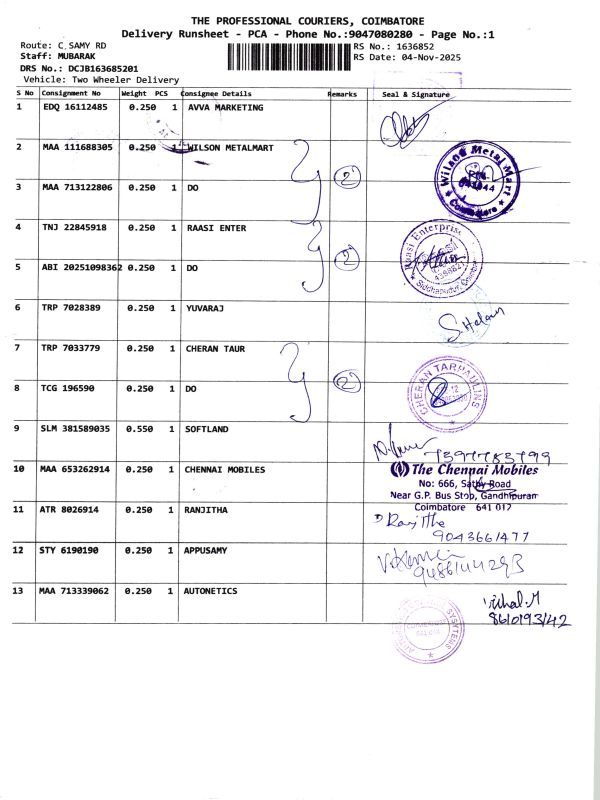 THE PROFESSIONAL COURIERS, COIMBATORE
Delivery Runsheet - PCA - Phone No.:9047080280 - Page No.:1
Route: C.SAMY RD
RS No.: 1636852
Staff: MUBARAK
RS Date: 04-Nov-2025
DRS No.: DCJB163685201
Vehicle: Two Wheeler Delivery
S No Consignment No Weight PCS Consignee Details Remarks Seal & Signature
1 EDQ 16112485 0.250 1 AVVA MARKETING
2 MAA 111688305 0.250 1 WILSON METALMART
Wilson Metal Mart
Coimbatore
3 MAA 713122806 0.250 1 DO 2
4 TNJ 22845918 0.250 1 RAASI ENTER
Raasi Enterprise
5 ABI 20251098362 0.250 1 DO 2
6 TRP 7028389 0.250 1 YUVARAJ
7 TRP 7033779 0.250 1 CHERAN TAUR
CHERAN TARPAULINS
8 TCG 196590 0.250 1 DO 2
9 SLM 381589035 0.550 1 SOFTLAND
10 MAA 653262914 0.250 1 CHENNAI MOBILES
The Chennai Mobiles
No: 666, Sathy Road
Near G.P. Bus Stop, Gandhipuram
Coimbatore 641 012
11 ATR 8026914 0.250 1 RANJITHA
9043661477
12 STY 6190190 0.250 1 APPUSAMY
13 MAA 713339062 0.250 1 AUTONETICS